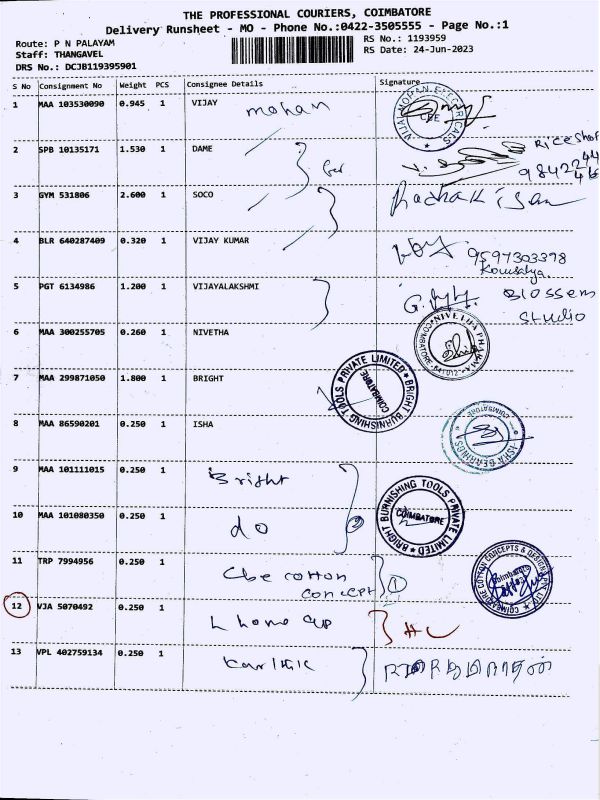 THE PROFESSIONAL COURIERS, COIMBATORE
Delivery Runsheet - MO - Phone No.:0422-3505555 - Page No.:1
Route: P N PALAYAM
Staff: THANGAVEL
DRS No.: DCJB119395901
RS No.: 1193959
RS Date: 24-Jun-2023
S No Consignment No Weight PCS Consignee Details Signature
1 MAA 103530090 0.945 1 VIJAY mohan
VIJAY MOHAN ELECTRICALS CBE
2 SPB 10135171 1.530 1 DAME
98422 44
3 GYM 531806 2.600 1 SOCO
Radhakisan
4 BLR 640287409 0.320 1 VIJAY KUMAR
9597303378
Kowsalya.
5 PGT 6134986 1.200 1 VIJAYALAKSHMI
Blossem
Studio
6 MAA 300255705 0.260 1 NIVETHA
NIVETHA COIMBATORE
7 MAA 299871050 1.800 1 BRIGHT
BRIGHT BURNISHING TOOLS PRIVATE LIMITED COIMBATORE
8 MAA 86590201 0.250 1 ISHA
ISHA BEARINGS COIMBATORE
9 MAA 101111015 0.250 1 Bright
10 MAA 101080350 0.250 1 do 2
BRIGHT BURNISHING TOOLS PRIVATE LIMITED COIMBATORE
11 TRP 7994956 0.250 1 Cbe cotton
concept 1
COIMBATORE COTTON CONCEPTS & DESIGN PVT LTD Coimbatore
12 VJA 5070492 0.250 1 L home
13 VPL 402759134 0.250 1 Karthik